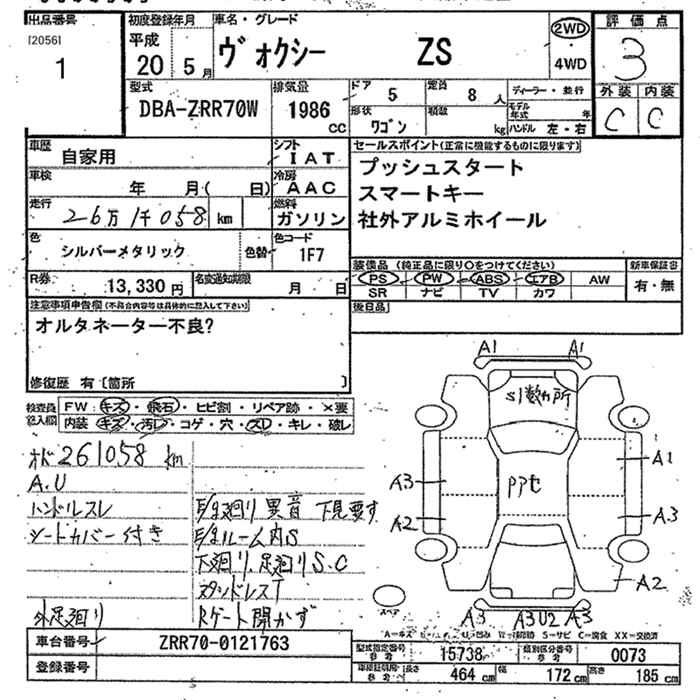 出品番号
[2056]
1
初度登録年月
平成
20 5月
車名・グレード
ヴォクシー ZS
2WD
・
4WD
評価点
3
外装 内装
C C
型式
DBA-ZRR70W
排気量
1986
cc
ドア 5
定員 8人
形状 ワゴン
積数 kg
ディーラー・並行
モデル年式 年
ハンドル 左・右
車歴
自家用
シフト
IAT
車検
年 月( 日)
冷房
AAC
走行
26万1千058 km
燃料
ガソリン
色
シルバーメタリック
色替
色コード
1F7
R券
13,330円
名変通知期限
月 日
セールスポイント(正常に機能するものに限ります)
プッシュスタート
スマートキー
社外アルミホイール
装備品 (純正品に限り○をつけてください)
PS PW ABS エアB AW
SR ナビ TV カワ
新車保証書
有・無
後日品
注意事項申告欄(不具合内容等は具体的に記入して下さい)
オルタネーター不良?
修復歴 有〔箇所 〕
検査員
記入欄
FW:キズ・飛石・ヒビ割・リペア跡・×要
内装・キズ・汚レ・コゲ・穴・スレ・キレ・破レ
オド261058km
A.U
ハンドルスレ
シートカバー付き
外足廻り
異音 下見要す
ルーム内S
下廻り、足廻りS.C
スタッドレスT
Rゲート開かず
A1 A1
S1数ヵ所
A3
A2
A1
A3
A2
A3 A3U2 A3
スペア
車台番号
ZRR70-0121763
登録番号
型式指定番号
参考
15738
類別区分番号
参考
0073
長さ 464cm
幅 172cm
高さ 185cm